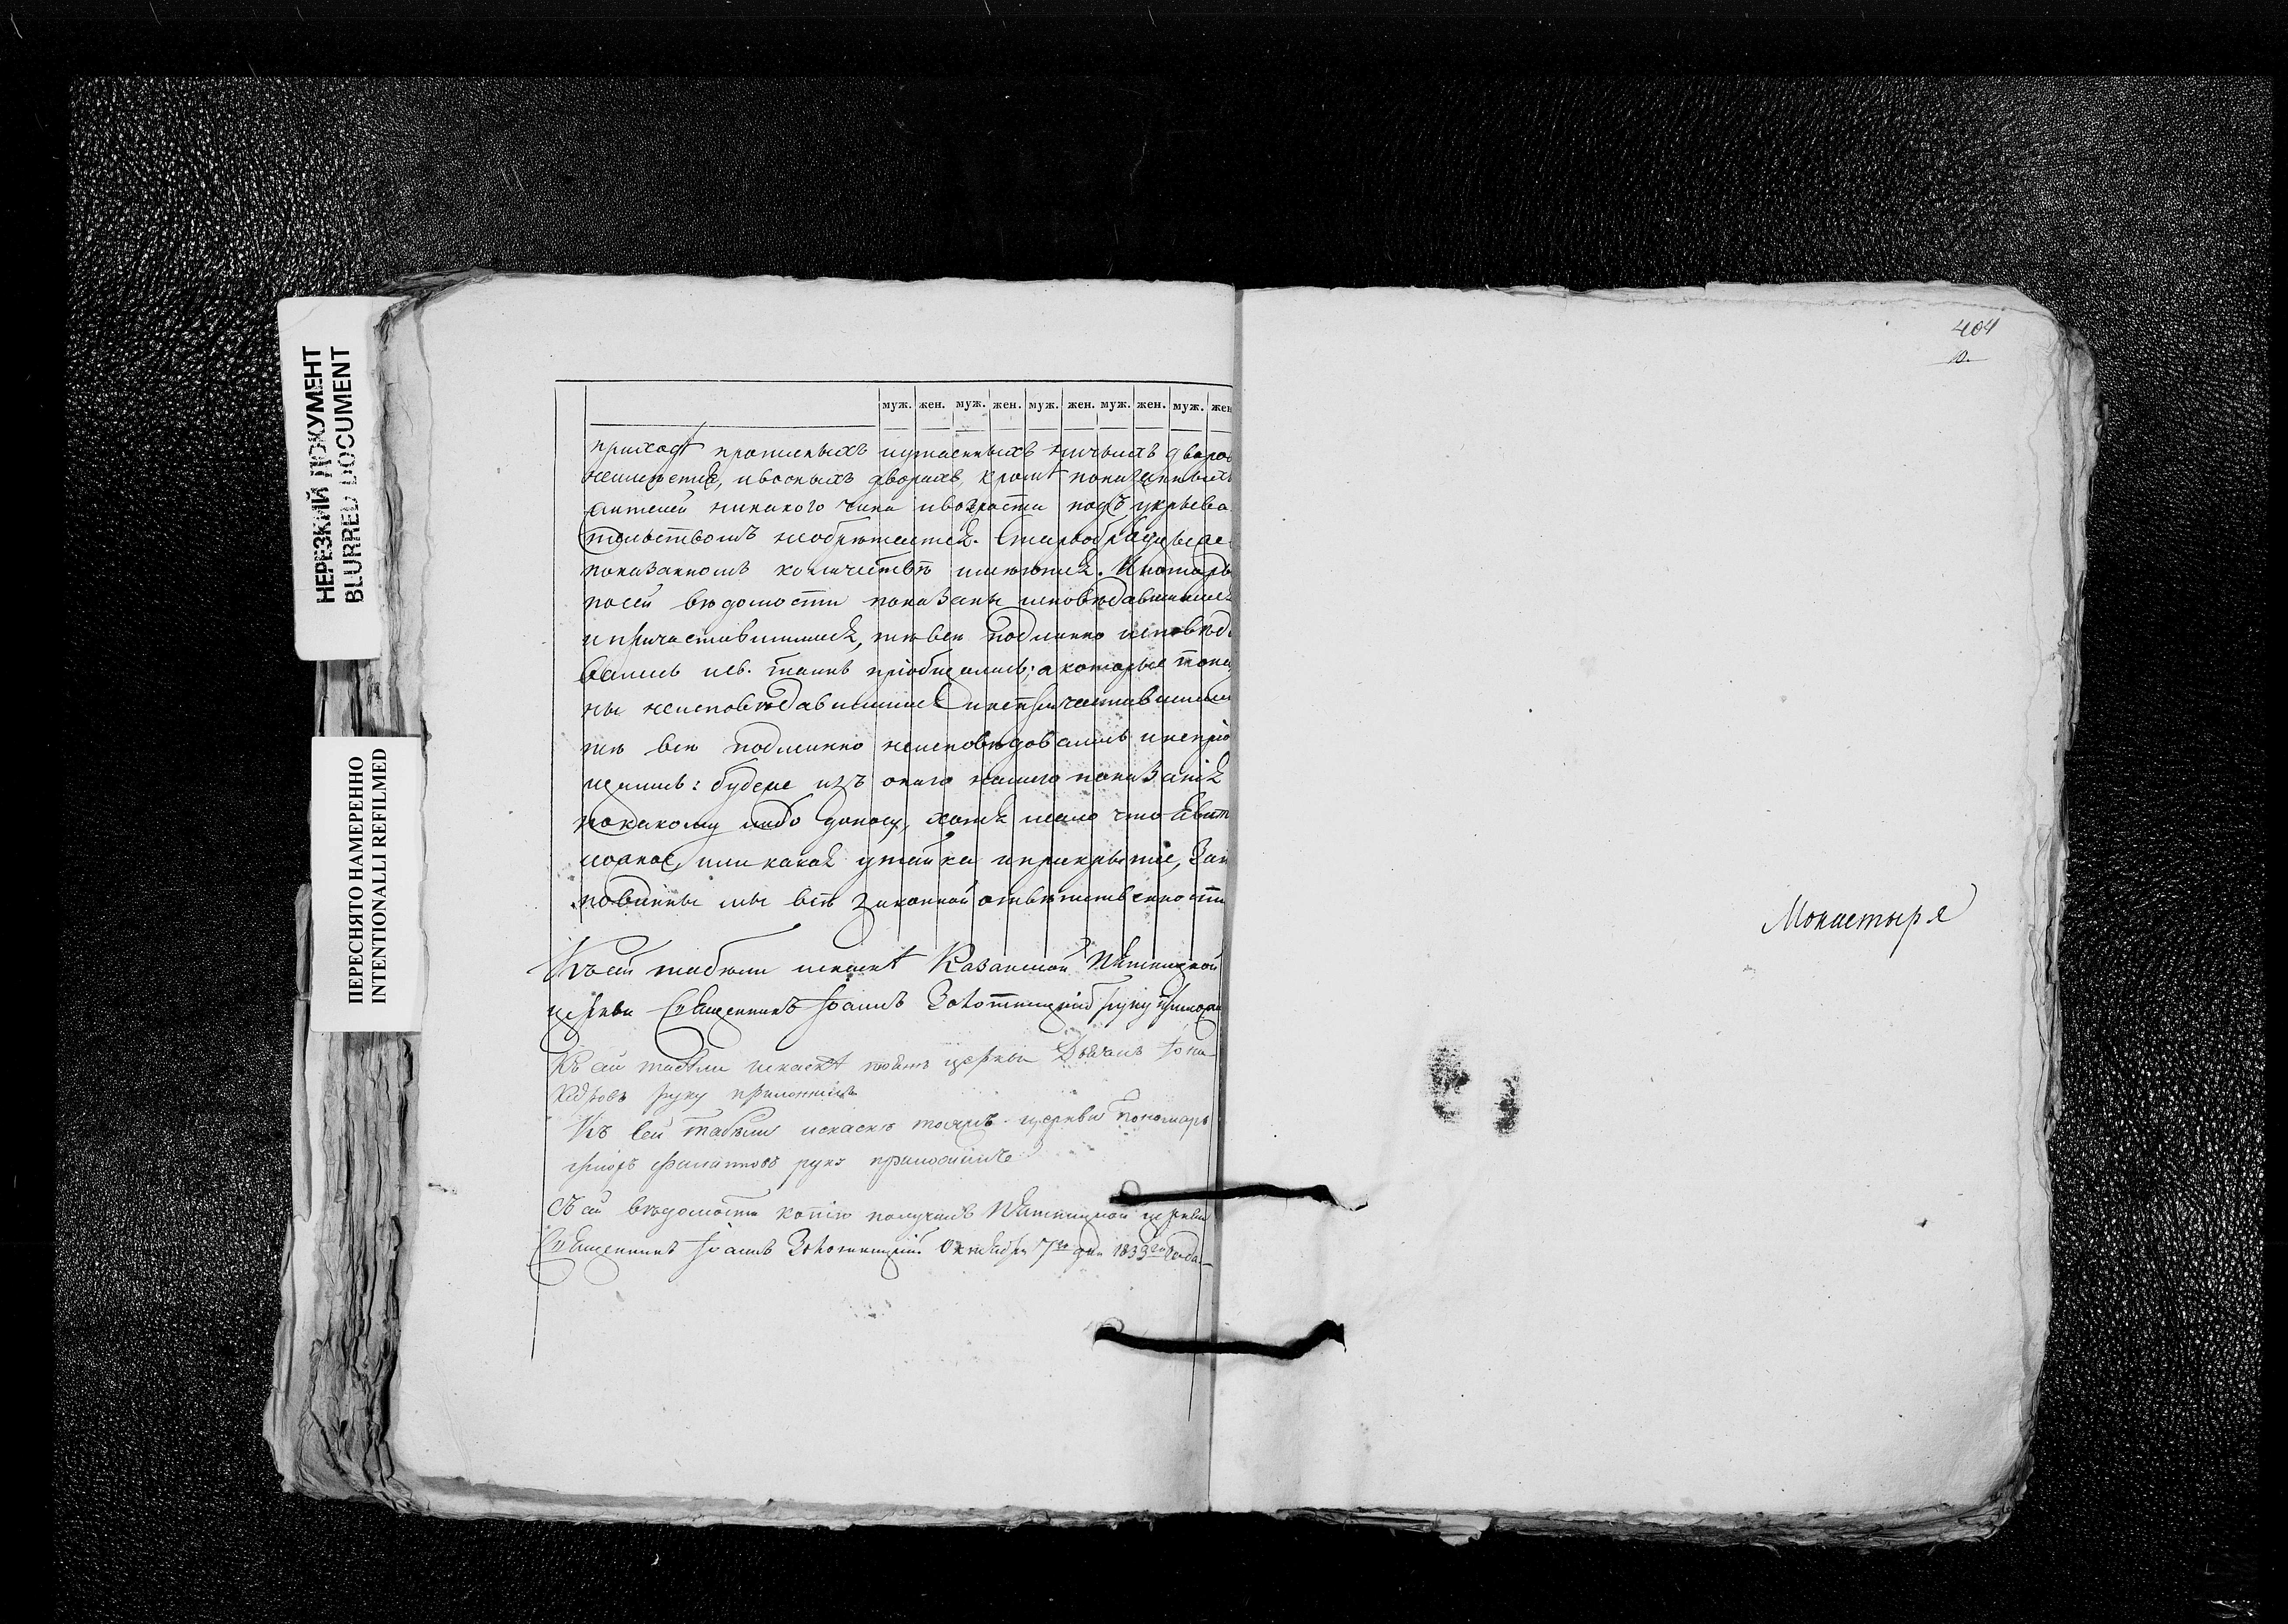 НЕРЕЗКИЙ ДОКУМЕНТ
BLURRED DOCUMENT
ПЕРЕСНЯТО НАМЕРЕННО
INTENTIONALLI REFILMED
муж. жен. муж. жен. муж. жен. муж. жен. муж. жен
приходѣ прописныхъ иутаенныхъ ничьихъ дворо
неимѣется, ивооныхъ дворахъ, кромѣ показанныхъ
никакого чина ивозраста подъ укрыва
тельствомъ необрѣтается.
показанномъ количествѣ имѣются. Икоторы
посей вѣдомости показаны исповѣдавшимися
ипричастившимися, тѣ всѣ подлинно исповѣд
вались исв. таинъ пріобщались; а которые пока
ны неисповѣдавшимися инепричастившимися
тѣ всѣ подлинно неисповѣдовались инепріо
щались: будеже изъ онаго нашего показанія
покакому либо доносу, хотя мало что явит
ложное, или какая утайка иприкрытіе, Зат
повинны мы всѣ законной отвѣтственности
Ксей табели исказкѣ Казанской Пятницкой
церкви Священникъ Іоаннъ Золотницкій руку приложи
Къ сей табели исказкѣ тояжъ церкви Дьячокъ
руку приложилъ
Къ сей табели исказкѣ тояжъ церкви пономарь
руку приложилъ
Съ сей вѣдомости копію получилъ Пятницкой церкви
Священникъ Іоаннъ Золотницкій. Октября 7го дня 1839го года.
404
Монастыря